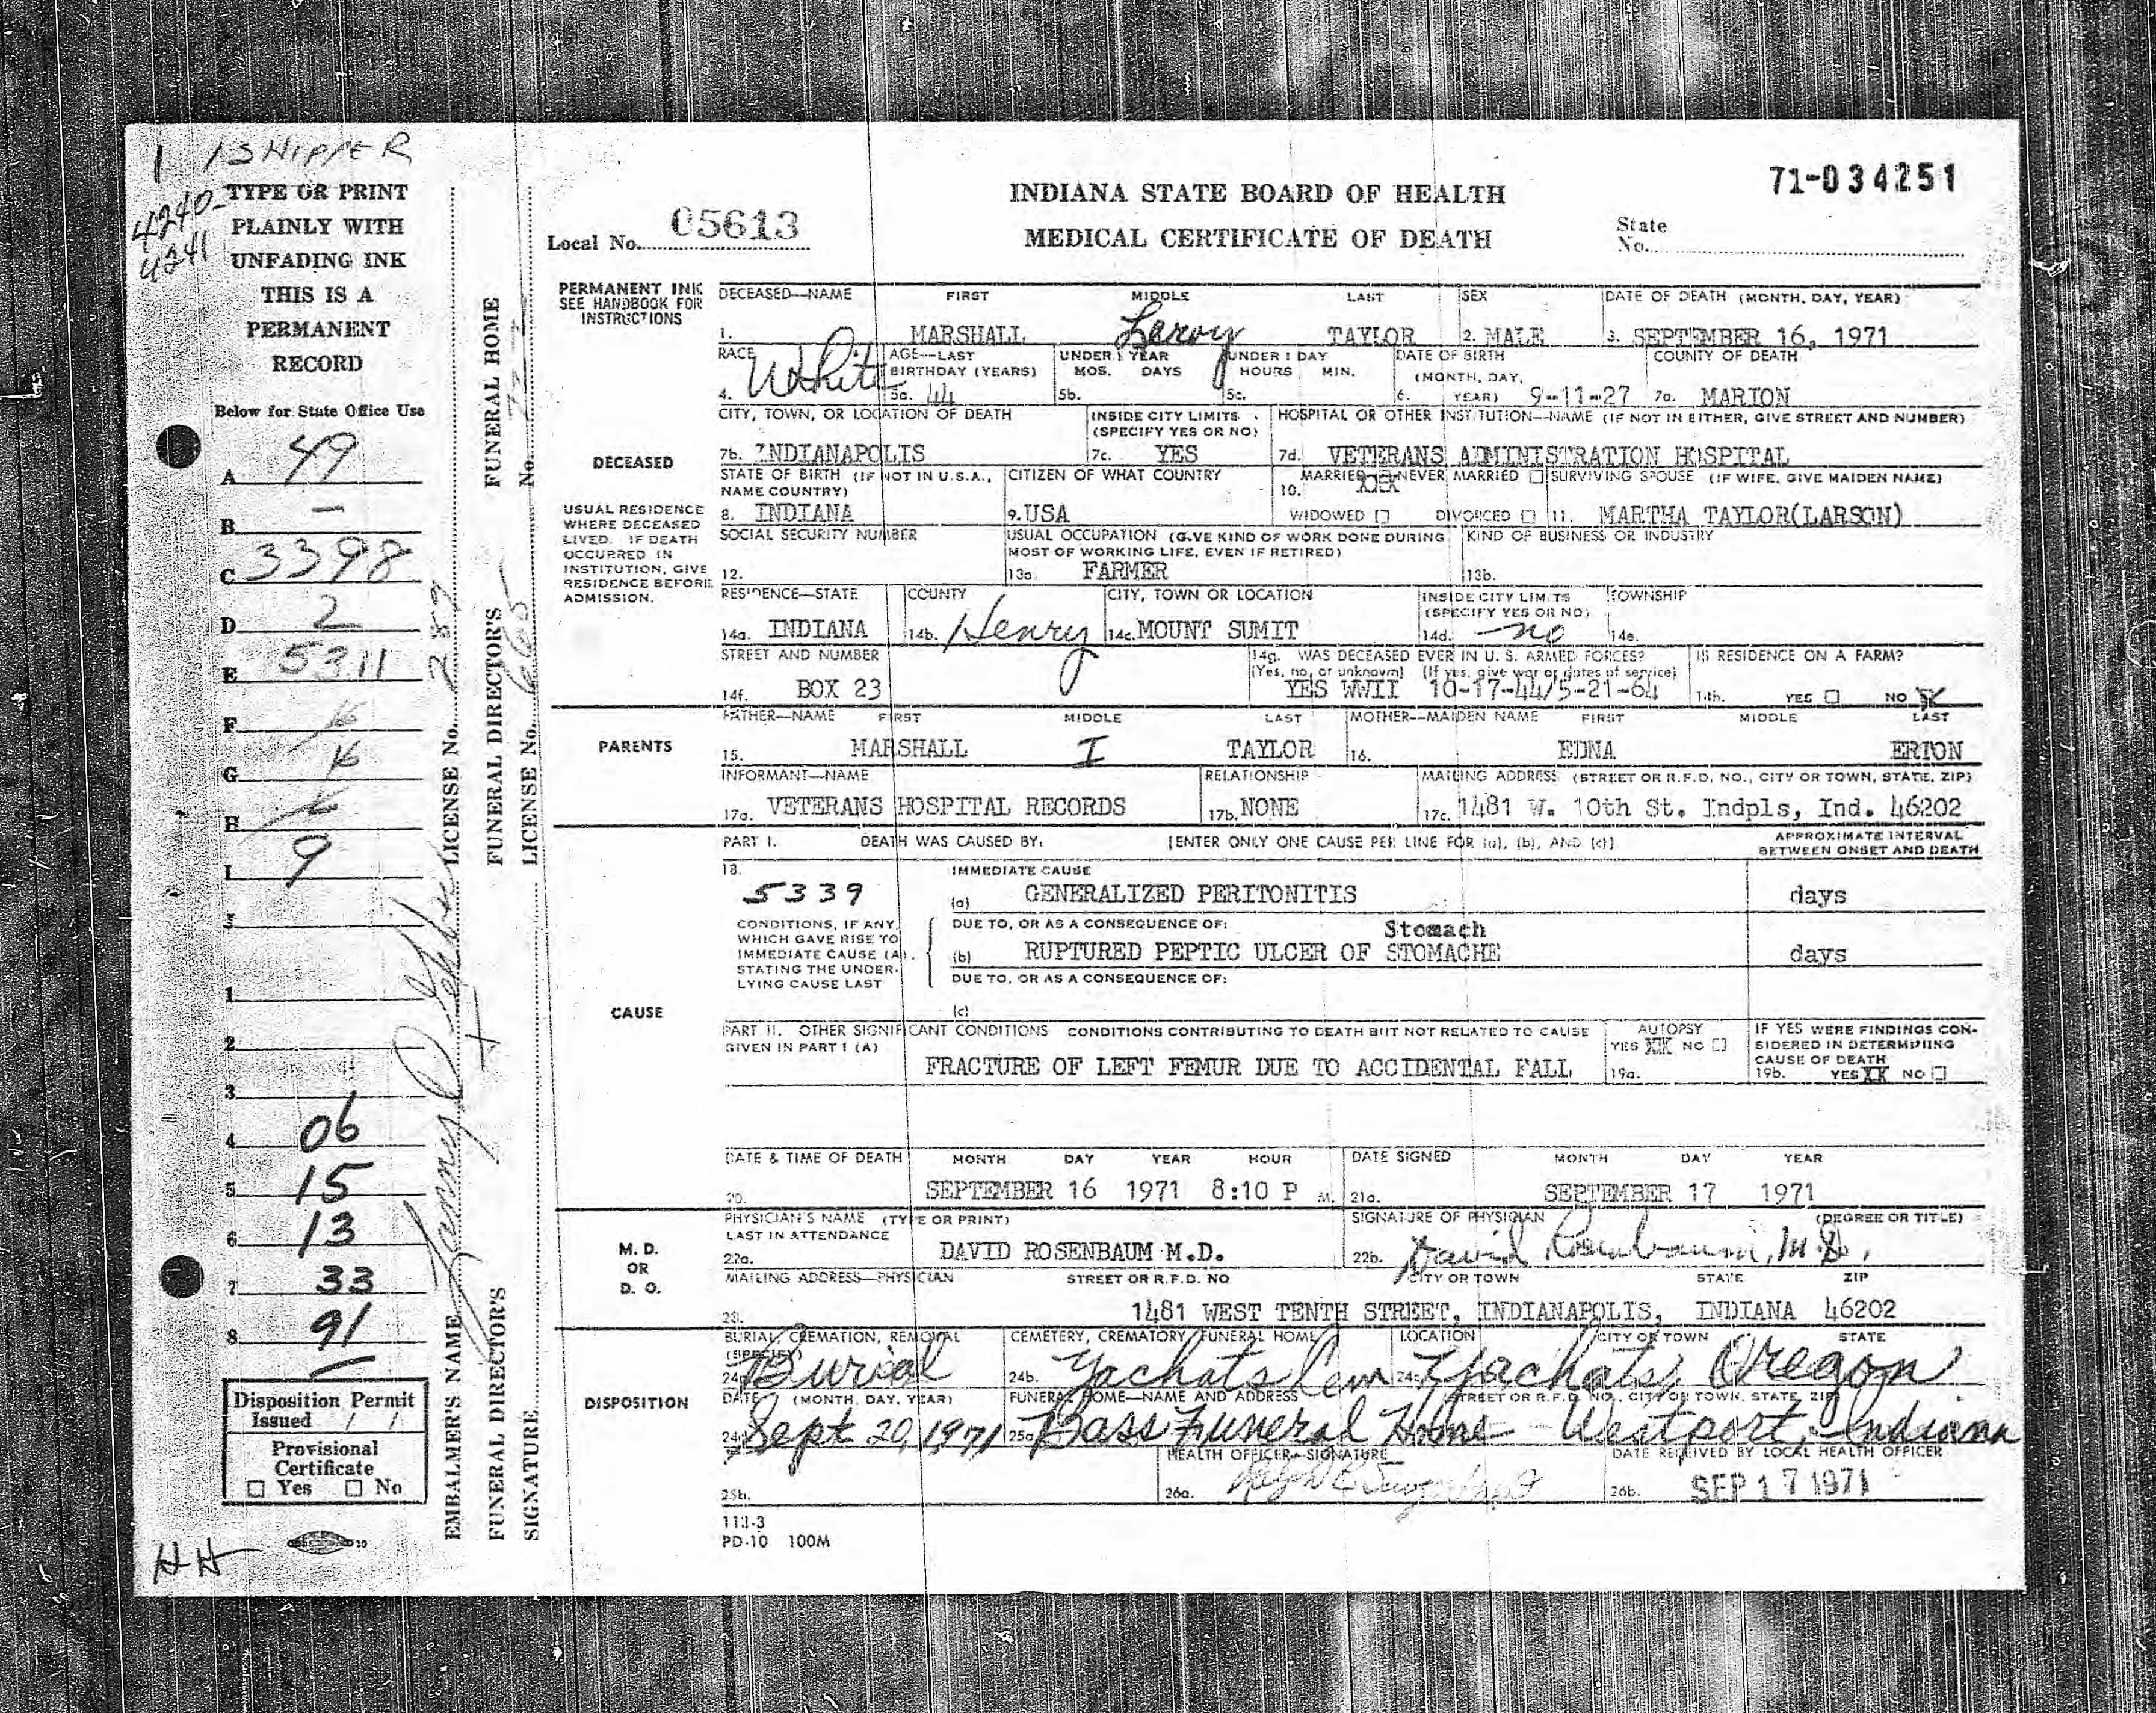 1 1 SHIPPER
4240-
4241
TYPE OR PRINT
PLAINLY WITH
UNFADING INK
THIS IS A
PERMANENT
RECORD
Below for State Office Use
A 49
B –
C 3398
D 2
E 5311
F
G
H
I 9
J
1
2
3
4 06
5 15
6 13
7 33
8 91
Disposition Permit
Issued / /
Provisional
Certificate
☐ Yes ☐ No
HH
EMBALMER'S NAME LICENSE No.
FUNERAL DIRECTOR'S FUNERAL DIRECTOR'S FUNERAL HOME
SIGNATURE LICENSE No. No.
71-034251
INDIANA STATE BOARD OF HEALTH
MEDICAL CERTIFICATE OF DEATH
Local No. 05613
State
No.
PERMANENT INK
SEE HANDBOOK FOR
INSTRUCTIONS
DECEASED—NAME FIRST MIDDLE LAST SEX DATE OF DEATH (MONTH, DAY, YEAR)
1. MARSHALL Leroy TAYLOR 2. MALE 3. SEPTEMBER 16, 1971
RACE AGE—LAST BIRTHDAY (YEARS) UNDER 1 YEAR MOS. DAYS UNDER 1 DAY HOURS MIN. DATE OF BIRTH (MONTH, DAY, YEAR) COUNTY OF DEATH
4. White 5a. 44 5b. 5c. 6. 9-11-27 7a. MARION
CITY, TOWN, OR LOCATION OF DEATH INSIDE CITY LIMITS (SPECIFY YES OR NO) HOSPITAL OR OTHER INSTITUTION—NAME (IF NOT IN EITHER, GIVE STREET AND NUMBER)
DECEASED
7b. INDIANAPOLIS 7c. YES 7d. VETERANS ADMINISTRATION HOSPITAL
STATE OF BIRTH (IF NOT IN U.S.A., NAME COUNTRY) CITIZEN OF WHAT COUNTRY 10. MARRIED XX NEVER MARRIED ☐ SURVIVING SPOUSE (IF WIFE, GIVE MAIDEN NAME)
8. INDIANA 9. USA WIDOWED ☐ DIVORCED ☐ 11. MARTHA TAYLOR(LARSON)
USUAL RESIDENCE
WHERE DECEASED
LIVED. IF DEATH
OCCURRED IN
INSTITUTION, GIVE
RESIDENCE BEFORE
ADMISSION.
SOCIAL SECURITY NUMBER USUAL OCCUPATION (GIVE KIND OF WORK DONE DURING MOST OF WORKING LIFE, EVEN IF RETIRED) KIND OF BUSINESS OR INDUSTRY
12. 13a. FARMER 13b.
RESIDENCE—STATE COUNTY CITY, TOWN OR LOCATION INSIDE CITY LIMITS (SPECIFY YES OR NO) TOWNSHIP
14a. INDIANA 14b. Henry 14c. MOUNT SUMIT 14d. no 14e.
STREET AND NUMBER 14g. WAS DECEASED EVER IN U. S. ARMED FORCES? IS RESIDENCE ON A FARM?
(Yes, no, or unknown) (If yes, give war or dates of service)
14f. BOX 23 YES WWII 10-17-44/5-21-64 14h. YES ☐ NO X
FATHER—NAME FIRST MIDDLE LAST MOTHER—MAIDEN NAME FIRST MIDDLE LAST
PARENTS
15. MARSHALL I TAYLOR 16. EDNA ERTON
INFORMANT—NAME RELATIONSHIP MAILING ADDRESS (STREET OR R.F.D. NO., CITY OR TOWN, STATE, ZIP)
17a. VETERANS HOSPITAL RECORDS 17b. NONE 17c. 1481 W. 10th St. Indpls, Ind. 46202
PART I. DEATH WAS CAUSED BY: [ENTER ONLY ONE CAUSE PER LINE FOR (a), (b), AND (c)] APPROXIMATE INTERVAL
BETWEEN ONSET AND DEATH
18. IMMEDIATE CAUSE
5339 (a) GENERALIZED PERITONITIS days
CONDITIONS, IF ANY,
WHICH GAVE RISE TO
IMMEDIATE CAUSE (A),
STATING THE UNDER-
LYING CAUSE LAST
DUE TO, OR AS A CONSEQUENCE OF: Stomach
(b) RUPTURED PEPTIC ULCER OF STOMACHE days
DUE TO, OR AS A CONSEQUENCE OF:
CAUSE
(c)
PART II. OTHER SIGNIFICANT CONDITIONS CONDITIONS CONTRIBUTING TO DEATH BUT NOT RELATED TO CAUSE
GIVEN IN PART I (A)
FRACTURE OF LEFT FEMUR DUE TO ACCIDENTAL FALL
AUTOPSY
YES XX NO ☐
19a.
IF YES WERE FINDINGS CON-
SIDERED IN DETERMINING
CAUSE OF DEATH
19b. YES XX NO ☐
DATE & TIME OF DEATH MONTH DAY YEAR HOUR DATE SIGNED MONTH DAY YEAR
20. SEPTEMBER 16 1971 8:10 P M. 21a. SEPTEMBER 17 1971
PHYSICIAN'S NAME (TYPE OR PRINT) SIGNATURE OF PHYSICIAN (DEGREE OR TITLE)
LAST IN ATTENDANCE
M. D.
OR
D. O.
22a. DAVID ROSENBAUM M.D. 22b. David Rosenbaum, M.D.
MAILING ADDRESS—PHYSICIAN STREET OR R.F.D. NO CITY OR TOWN STATE ZIP
23. 1481 WEST TENTH STREET, INDIANAPOLIS, INDIANA 46202
BURIAL, CREMATION, REMOVAL (SPECIFY) CEMETERY, CREMATORY, FUNERAL HOME LOCATION CITY OR TOWN STATE
24a. Burial 24b. Yachats Cem 24c. Yachats, Oregon
DISPOSITION
DATE (MONTH, DAY, YEAR) FUNERAL HOME—NAME AND ADDRESS STREET OR R.F.D. NO., CITY OR TOWN, STATE, ZIP
24d. Sept 20, 1971 25a. Bass Funeral Home Westport, Indiana
HEALTH OFFICER—SIGNATURE DATE RECEIVED BY LOCAL HEALTH OFFICER
25b. 26a. 26b. SEP 17 1971
113-3
PD-10 100M